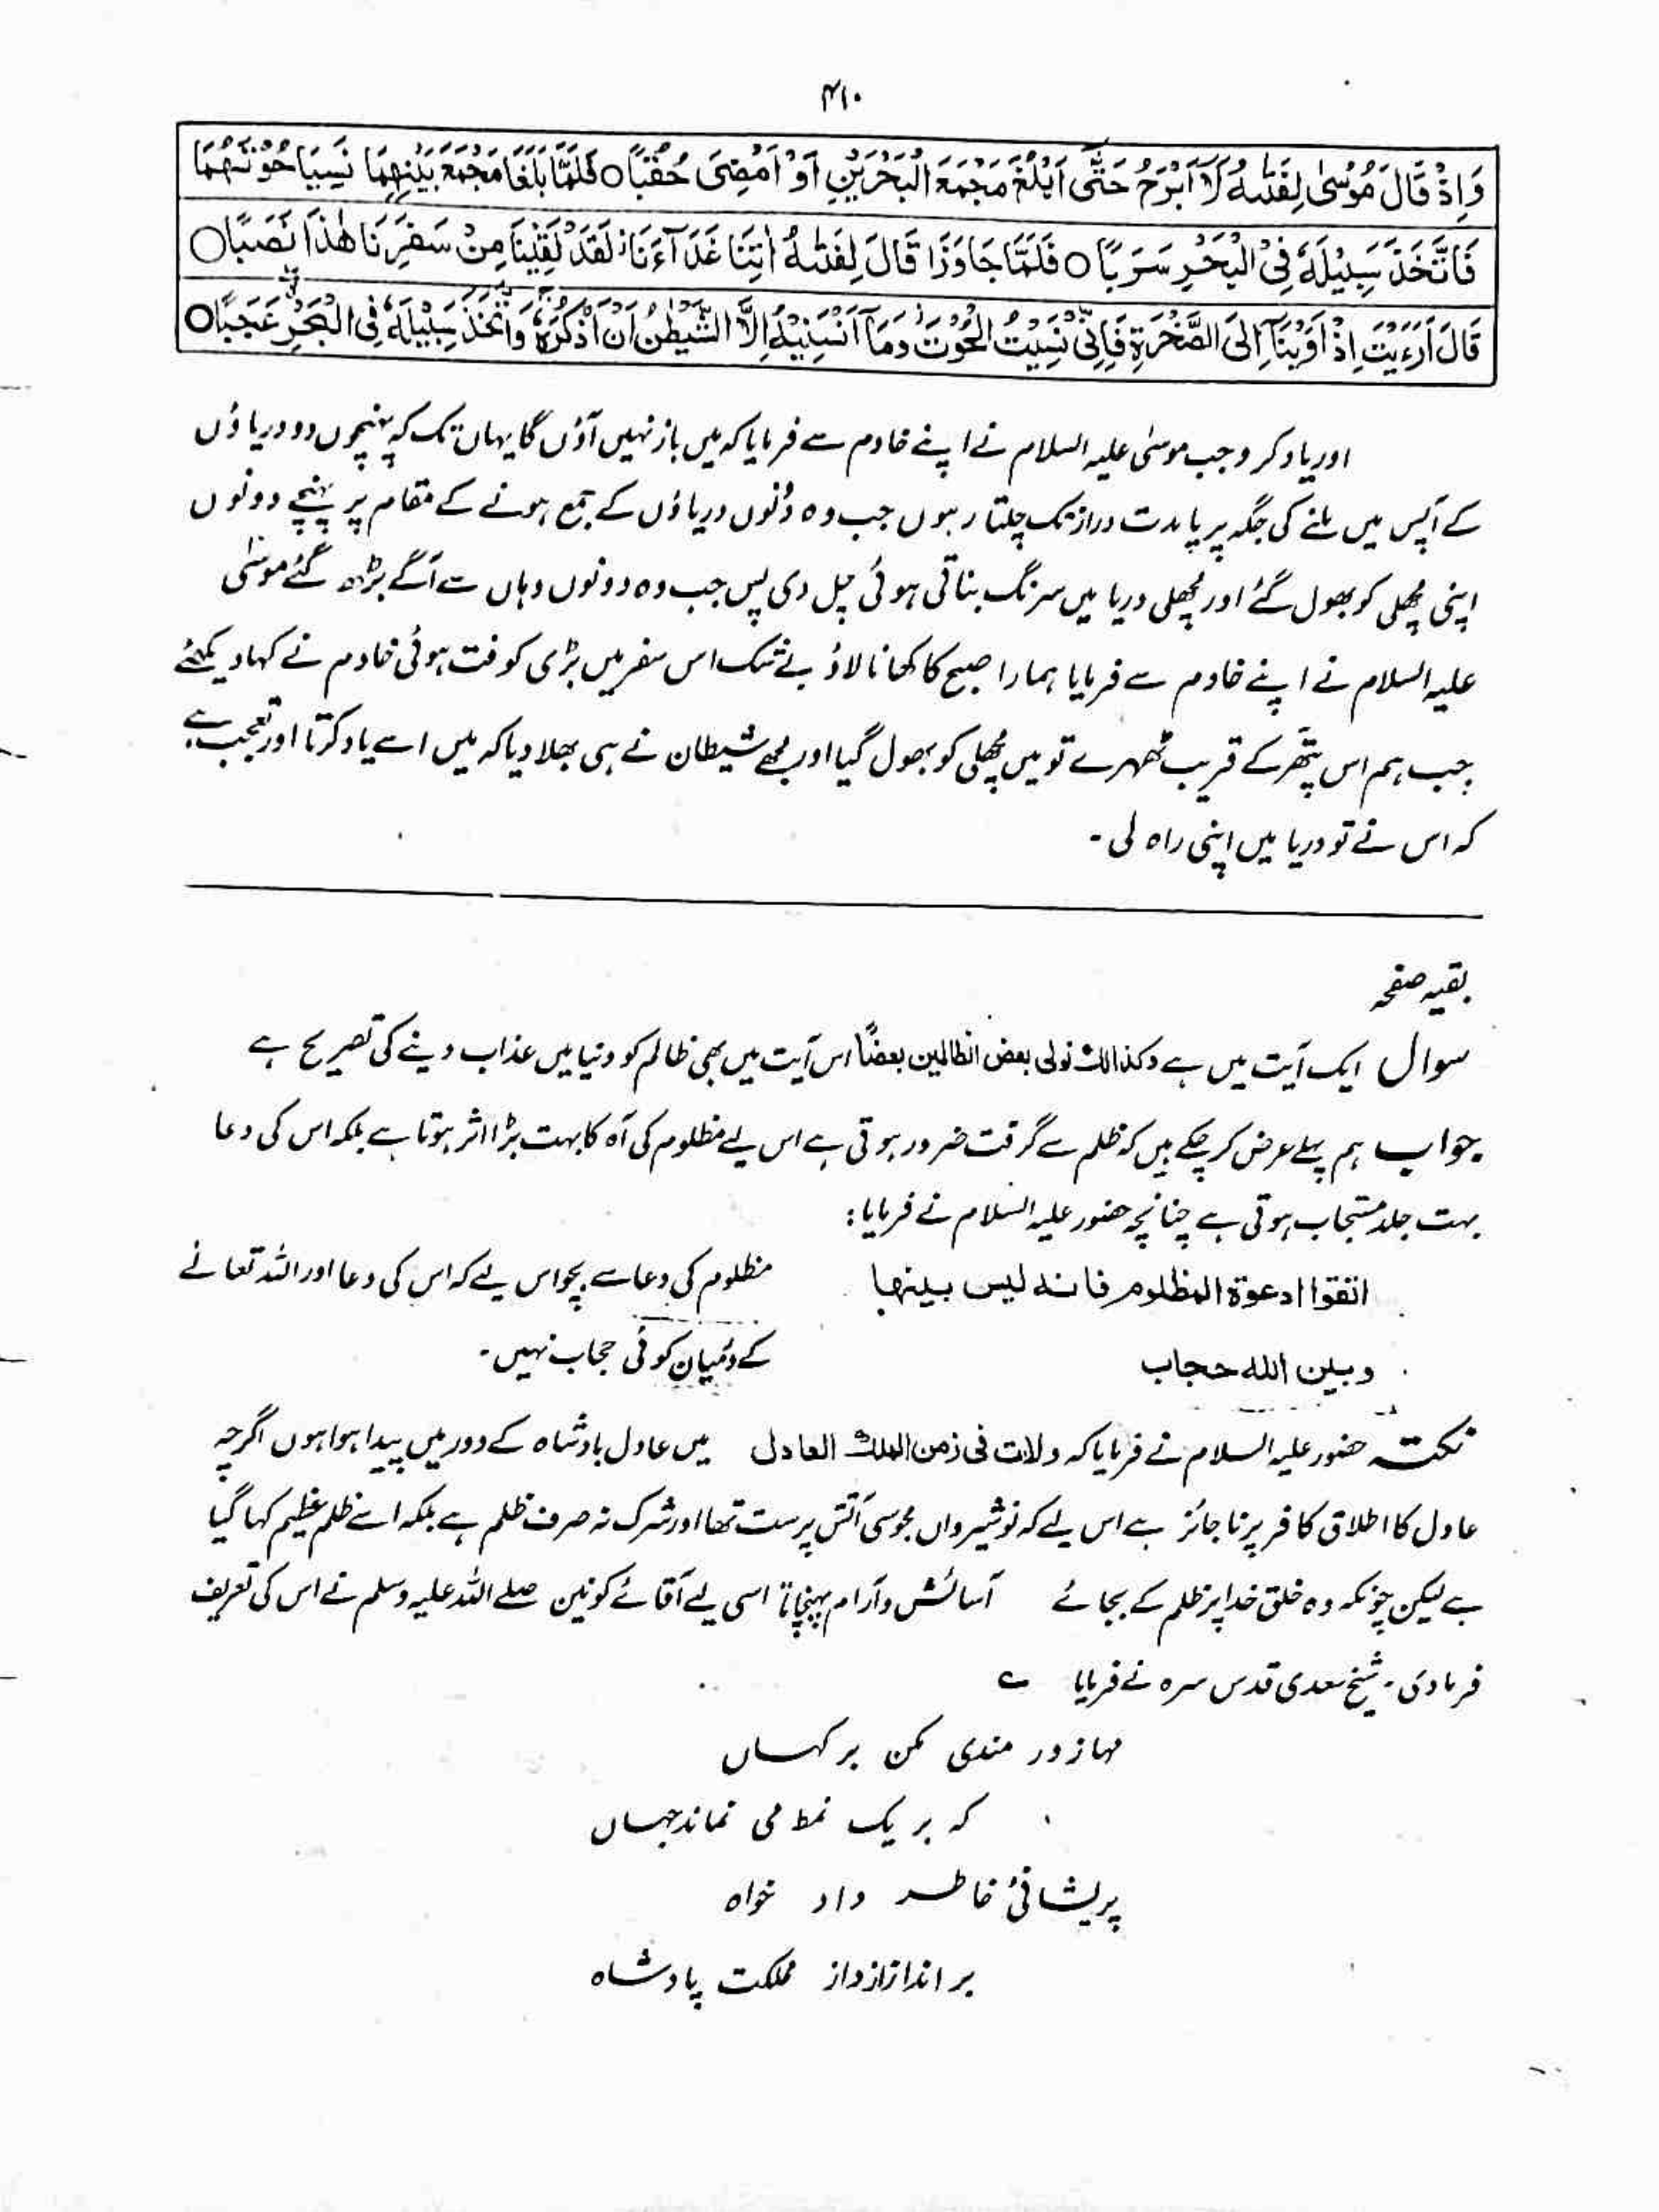 ۴۱۰
وَاِذْ قَالَ مُوْسٰی لِفَتٰىهُ لَآ اَبْرَحُ حَتّٰۤى اَبْلُغَ مَجْمَعَ الْبَحْرَيْنِ اَوْ اَمْضِیَ حُقُبًا ○ فَلَمَّا بَلَغَا مَجْمَعَ بَيْنِهِمَا نَسِيَا حُوْتَهُمَا
فَاتَّخَذَ سَبِيْلَهٗ فِی الْبَحْرِ سَرَبًا ○ فَلَمَّا جَاوَزَا قَالَ لِفَتٰىهُ اٰتِنَا غَدَآءَنَا لَقَدْ لَقِيْنَا مِنْ سَفَرِنَا هٰذَا نَصَبًا ○
قَالَ اَرَءَيْتَ اِذْ اَوَيْنَآ اِلَی الصَّخْرَةِ فَاِنِّیْ نَسِيْتُ الْحُوْتَ وَمَآ اَنْسٰنِيْهُ اِلَّا الشَّيْطٰنُ اَنْ اَذْكُرَهٗ وَاتَّخَذَ سَبِيْلَهٗ فِی الْبَحْرِ عَجَبًا ○
اور یاد کرو جب موسیٰ علیہ السلام نے اپنے خادم سے فرمایا کہ میں باز نہیں آؤں گا یہاں تک کہ پہنچوں دو دریاؤں
کے آپس میں ملنے کی جگہ پر یا مدت دراز تک چلتا رہوں جب وہ دونوں دریاؤں کے جمع ہونے کے مقام پر پہنچے دونوں
اپنی مچھلی کو بھول گئے اور مچھلی دریا میں سرنگ بناتی ہوئی چل دی پس جب وہ دونوں وہاں سے آگے بڑھ گئے موسیٰ
علیہ السلام نے اپنے خادم سے فرمایا ہمارا صبح کا کھانا لاؤ بے شک اس سفر میں بڑی کوفت ہوئی خادم نے کہا دیکھئے
جب ہم اس پتھر کے قریب ٹھہرے تو میں مچھلی کو بھول گیا اور مجھے شیطان نے ہی بھلا دیا کہ میں اسے یاد کرتا اور تعجب ہے
کہ اس نے تو دریا میں اپنی راہ لی۔
بقیہ صفحہ
سوال ایک آیت میں ہے وکذالک نولی بعض الظالمین بعضًا اس آیت میں بھی ظالم کو دنیا میں عذاب دینے کی تصریح ہے
جواب ہم پہلے عرض کر چکے ہیں کہ ظلم سے گرفت ضرور ہوتی ہے اس لیے مظلوم کی آہ کا بہت بڑا اثر ہوتا ہے بلکہ اس کی دعا
بہت جلد مستجاب ہوتی ہے چنانچہ حضور علیہ السلام نے فرمایا:
اتقوا ادعوة المظلوم فانه لیس بینها
وبین الله حجاب
مظلوم کی دعا سے بچو اس لیے کہ اس کی دعا اور اللہ تعالے
کے درمیان کوئی حجاب نہیں۔
نکتہ حضور علیہ السلام نے فرمایا کہ ولات فی زمن الملک العادل میں عادل بادشاہ کے دور میں پیدا ہوا ہوں اگرچہ
عادل کا اطلاق کافر پر ناجائز ہے اس لیے کہ نوشیرواں مجوسی آتش پرست تھا اور شرک نہ صرف ظلم ہے بلکہ اسے ظلم عظیم کہا گیا
ہے لیکن چونکہ وہ خلق خدا پر ظلم کے بجائے آسائش و آرام پہنچاتا اسی لیے آقائے کونین صلے اللہ علیہ وسلم نے اس کی تعریف
فرمادی۔ شیخ سعدی قدس سرہ نے فرمایا ؎
مہا زور مندی مکن بر کہاں
کہ بر یک نمط می نماند جہاں
پریشانئ خاطر داد خواہ
بر اندازد از مملکت پادشاہ